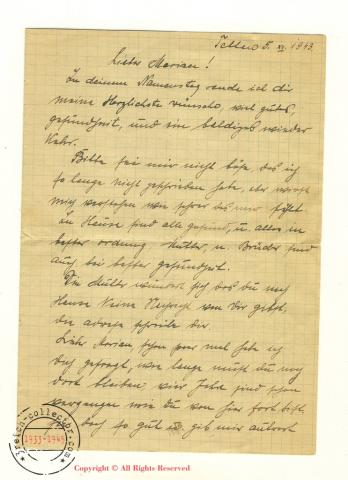 5. XI. 1943.
Lieber Marian!
Zu deinem Namenstag sende ich dir
meine Herzlichste wünsche, viel guts,
gesundheit, und ein baldiges wieder
kehr.
Bitte sei mir nicht böse, das ich
so lange nicht geschrieben habe, aber wirst
mich verstehen wie schwer das mir fählt
zu Hause sind alle gesund, u. alles in
bester ordnung. Mutter, u. Brüder sind
auch bei bester gesundheit.
Die Mutter wundert sich das du nach
Hause keine von dir gibst,
die adresse schreibe dir.
Lieber Marian, schon paar mal habe ich
dich gefragt, wie lange mußt du noch
dort bleiben, vier Jahre sind schon
vergangen wie du von hier fort bist.
doch so gut u. gib mir antwort
reich-collector.com
1933-1945
Copyright © All Rights Reserved